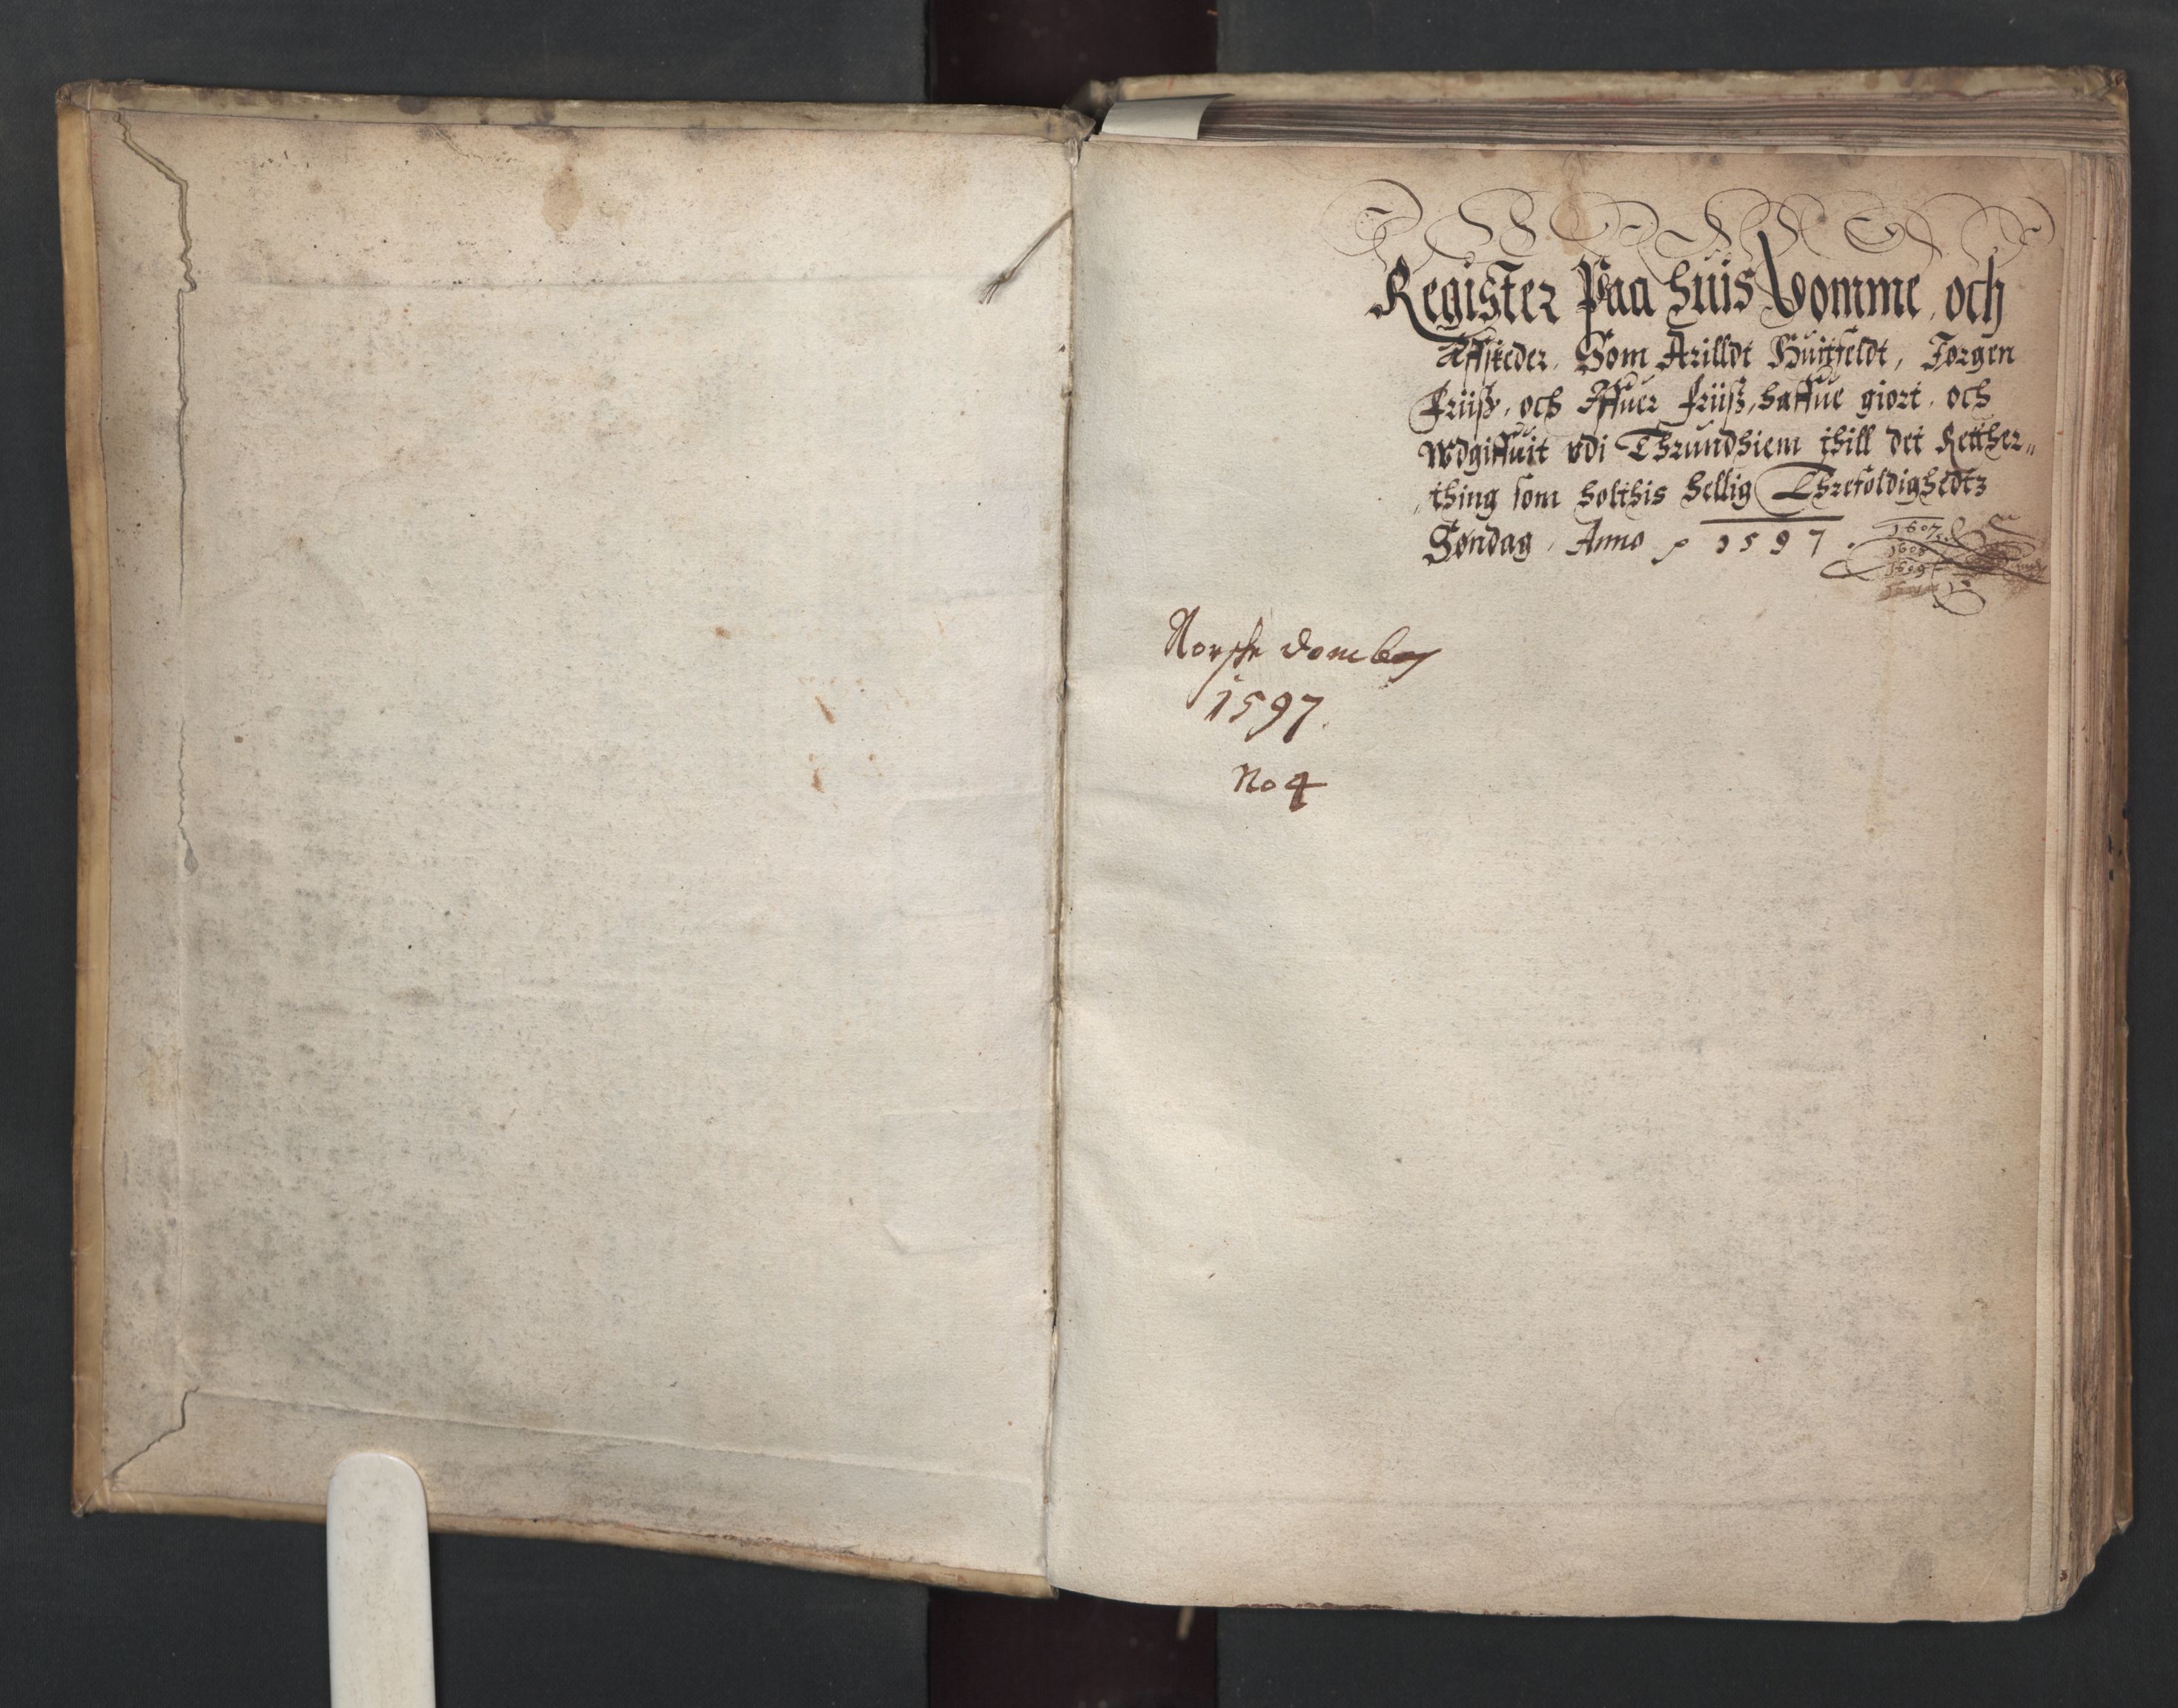 Register Paa huis Domme, och
Affskeder, Som Arilldt Huitfeldt, Jørgen
Friiß, och Iffuer Friiß, haffue giort, och
wdgiffuit vdi Thrundhiem thill det Retther„
„thing som holthis hellig Threfoldighedtz
Søndag, Anno 1597.
1607
1608
1609
Norske dombog
1597.
No 4